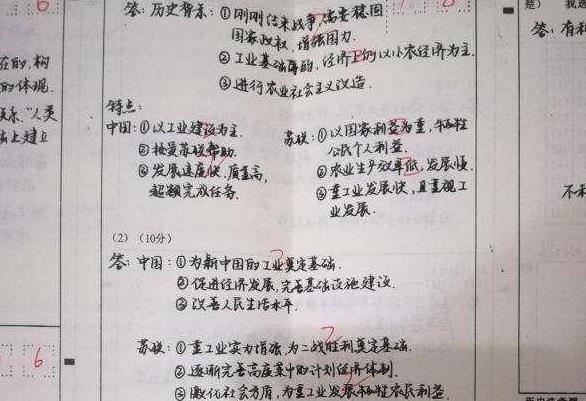 6
答:历史背景:①刚刚结束战争,需要稳固
国家政权,增强国力.
②工业基础薄弱,经济上仍以小农经济为主.
③进行农业社会主义改造.
特点:
中国:①以工业建设为主.
②接受苏联帮助.
③发展速度快,质量高,
超额完成任务.
苏联:①以国家利益为重,牺牲
公民个人利益.
②农业生产效率低,发展慢.
③重工业发展快,且重视工
业发展.
(2)(10分)
答:中国:①为新中国的工业奠定基础.
②促进经济发展,完善基础设施建设.
③改善人民生活水平.
苏联:①重工业实力增强,为二战胜利奠定基础.
②逐渐完善高度集中的计划经济体制.
③激化社会矛盾,为重工业发展牺牲农民利益.
在的,构
的体现.
关系"人类
上建立
6
题)
答:有利
不利